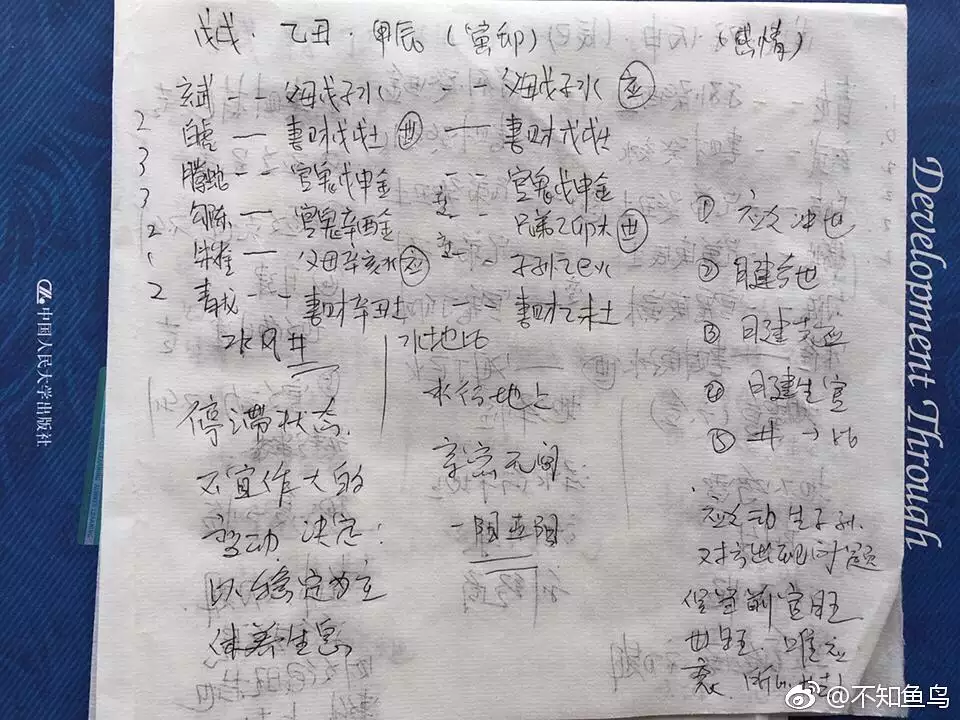 戊戌·乙丑·甲辰(寅卯)(感情)
玄武 -- 父母戊子水 -- 父母戊子水 应
2 白虎 — 妻财戊戌土 世 — 妻财戊戌土
3 腾蛇 -- 官鬼戊申金 -- 官鬼戊申金
3 勾陈 — 官鬼辛酉金 -- 兄弟乙卯木 世
2 朱雀 — 父母辛亥水 应 -- 子孙乙巳火
2 青龙 -- 妻财辛丑土 妻财乙未土
水风井
水地比
停滞状态
不宜作大的
变动 决定:
以稳定为主
休养生息
水行地上
亲密无间
① 应爻冲世
② 日建合世
③ 日建克应
④ 日建生官
⑤ 井→比
应爻动生子孙
对方出现问题
官旺
世旺. 唯应
衰.
中国人民大学出版社
Development Through
@不知鱼鸟